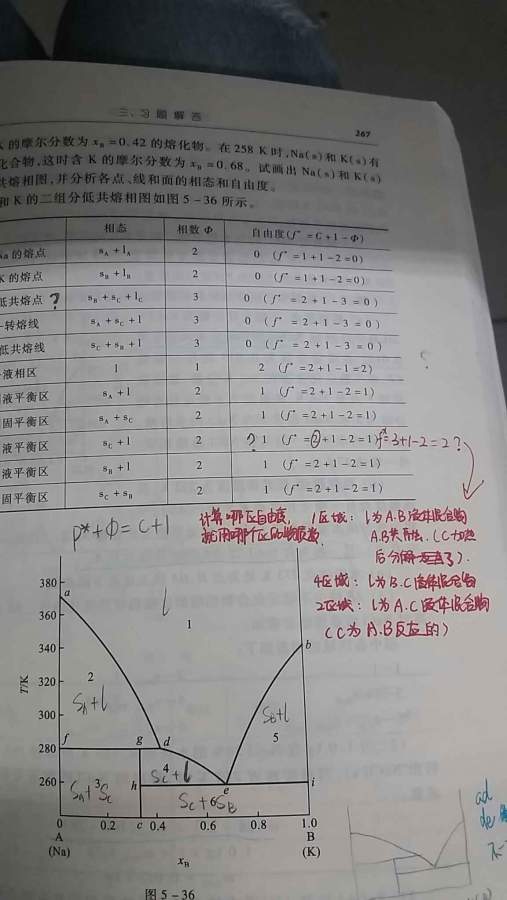 三、习题解答
267
K 的摩尔分数为 xB=0.42 的熔化物。在 258 K 时,Na(s)和 K(s)有
化合物,这时含 K 的摩尔分数为 xB=0.68。试画出 Na(s)和 K(s)
共熔相图,并分析各点、线和面的相态和自由度。
和 K 的二组分低共熔相图如图 5-36 所示。
相态 相数 Φ 自由度(f*=C+1-Φ)
Na的熔点 sA+lA 2 0 (f*=1+1-2=0)
K 的熔点 sB+lB 2 0 (f*=1+1-2=0)
低共熔点 ? sB+sC+lC 3 0 (f*=2+1-3=0)
转熔线 sA+sC+l 3 0 (f*=2+1-3=0)
低共熔线 sC+sB+l 3 0 (f*=2+1-3=0)
液相区 l 1 2 (f*=2+1-1=2)
液平衡区 sA+l 2 1 (f*=2+1-2=1)
固平衡区 sA+sC 2 1 (f*=2+1-2=1)
液平衡区 sC+l 2 ? 1 (f*=2+1-2=1) f*=3+1-2=2?
液平衡区 sB+l 2 1 (f*=2+1-2=1)
固平衡区 sC+sB 2 1 (f*=2+1-2=1)
P*+Φ=C+1
计算哪区自由度,
就用哪个区的物质数
1区域: l为A.B液体混合物
A.B共存
4区域: l为B.C液体混合物
2区域: l为A.C液体混合物
(C为A.B反应的)
T/K
380
360
340
320
300
280
260
a
b
l
1
2
SA+l
SB+l
5
f
g
d
4
SC+l
h
e
i
SA+3SC
SC+6SB
0
c
0.2
0.4
0.6
0.8
1.0
A
B
(Na)
(K)
xB
图 5-36
ad
de